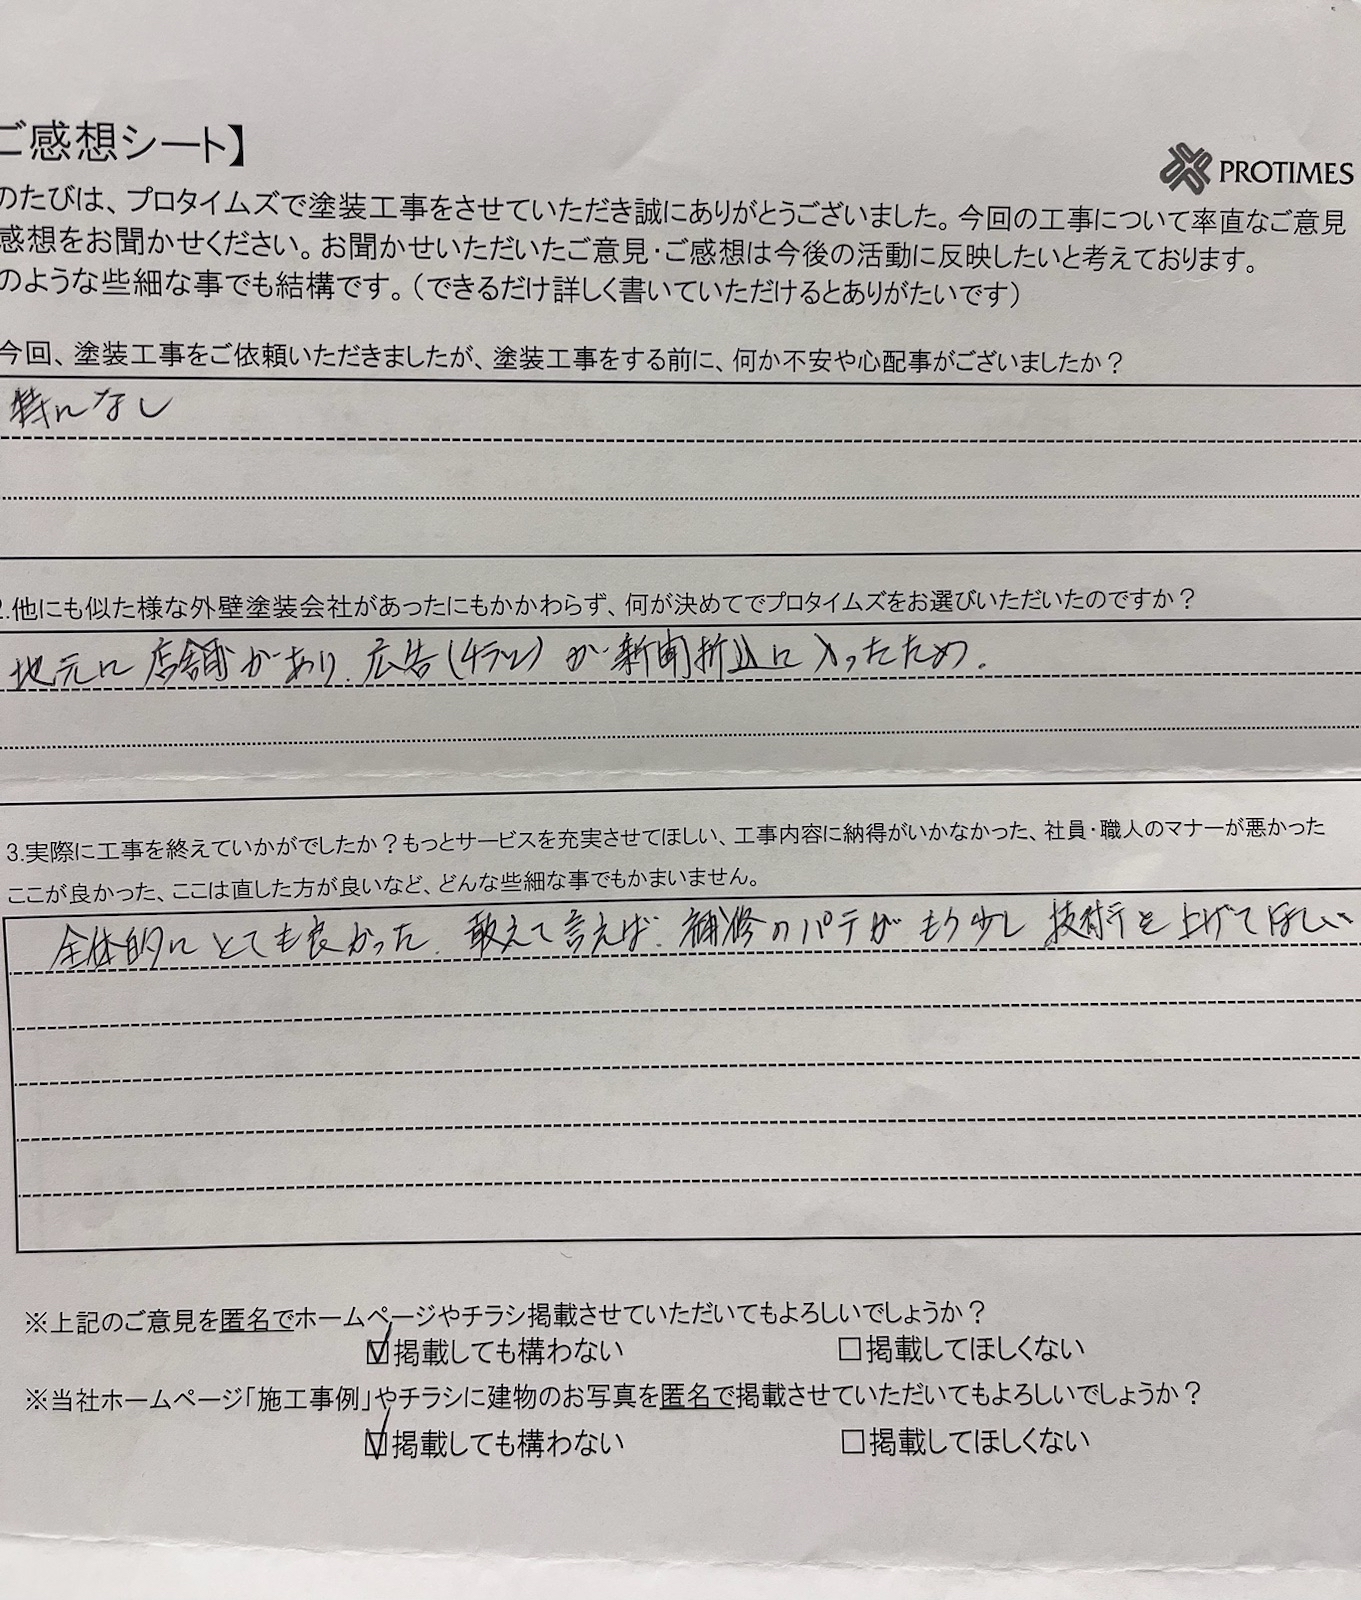 ご感想シート】
PROTIMES
のたびは、プロタイムズで塗装工事をさせていただき誠にありがとうございました。今回の工事について率直なご意見
感想をお聞かせください。お聞かせいただいたご意見・ご感想は今後の活動に反映したいと考えております。
のような些細な事でも結構です。（できるだけ詳しく書いていただけるとありがたいです）
今回、塗装工事をご依頼いただきましたが、塗装工事をする前に、何か不安や心配事がございましたか？
特になし
2.他にも似た様な外壁塗装会社があったにもかかわらず、何が決めてでプロタイムズをお選びいただいたのですか？
地元に店舗があり、広告(チラシ)が新聞折込に入ったため。
3.実際に工事を終えていかがでしたか？もっとサービスを充実させてほしい、工事内容に納得がいかなかった、社員・職人のマナーが悪かった
ここが良かった、ここは直した方が良いなど、どんな些細な事でもかまいません。
全体的にとても良かった。敢えて言えば、補修のパテがもう少し技術を上げてほしい
※上記のご意見を匿名でホームページやチラシ掲載させていただいてもよろしいでしょうか？
☑掲載しても構わない □掲載してほしくない
※当社ホームページ「施工事例」やチラシに建物のお写真を匿名で掲載させていただいてもよろしいでしょうか？
☑掲載しても構わない □掲載してほしくない